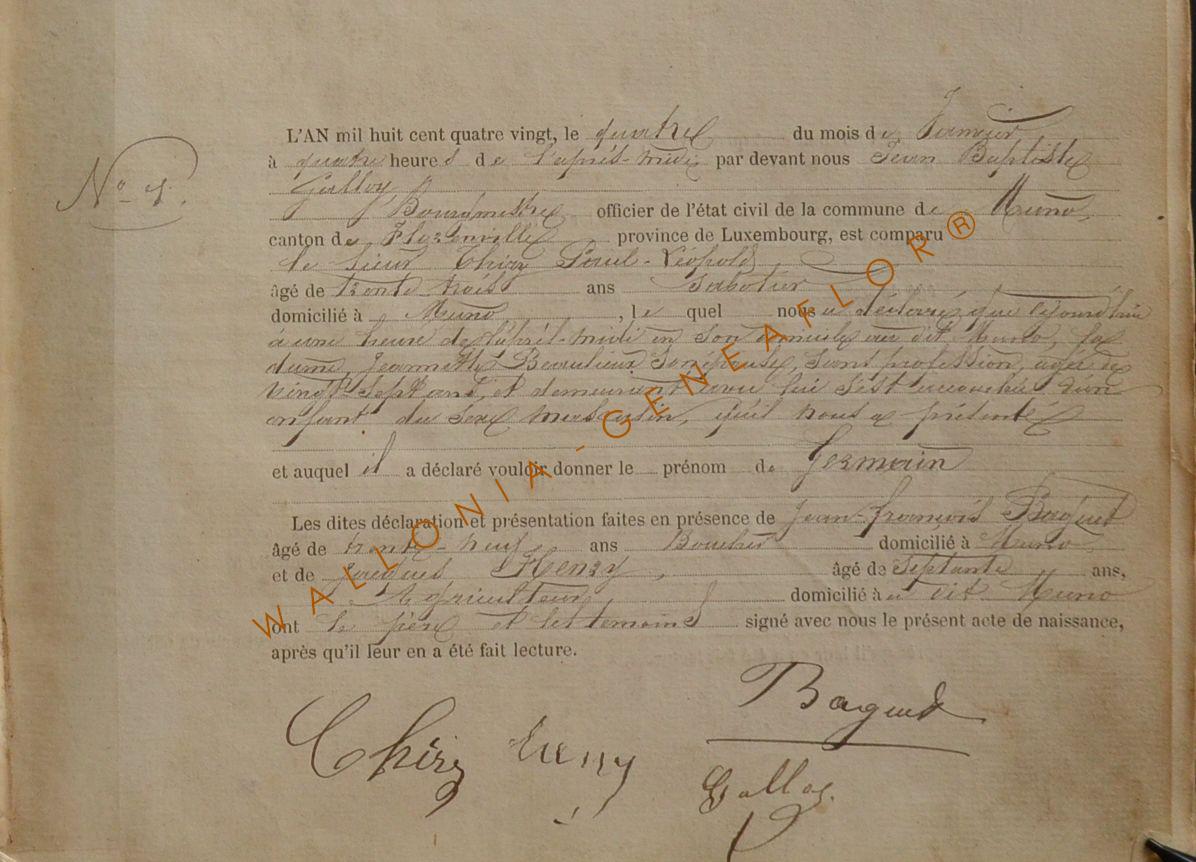 L'AN mil huit cent quatre vingt, le quatre du mois de Janvier,
No 1.
à quatre heures de l'après-midi par devant nous Jean Baptiste
Galloy
Bourgmestre, officier de l'état civil de la commune de Muno,
canton de Florenville province de Luxembourg, est comparu
le sieur Thiry Paul-Léopold,
âgé de trente trois ans Sabotier
domicilié à Muno, le quel nous a déclaré que cejourd'hui
à une heure de l'après-midi en son domicile au dit Muno, la
dame, Jeannette Beaulieu son épouse, sans profession, agée de
vingt sept ans, et demeurant avec lui s'est accouchée d'un
enfant du sexe masculin, qu'il nous a présenté
et auquel il a déclaré vouloir donner le prénom de Germain
Les dites déclaration et présentation faites en présence de Jean-François Baquet
âgé de trente-neuf ans Boucher domicilié à Muno
et de Jacques Henry, âgé de septante ans,
Agriculteur domicilié à au dit Muno
ont le père et les témoins signé avec nous le présent acte de naissance,
après qu'il leur en a été fait lecture.
Baquet
Thiry Henry
Galloy
WALLONIA-GENEAFLOR®